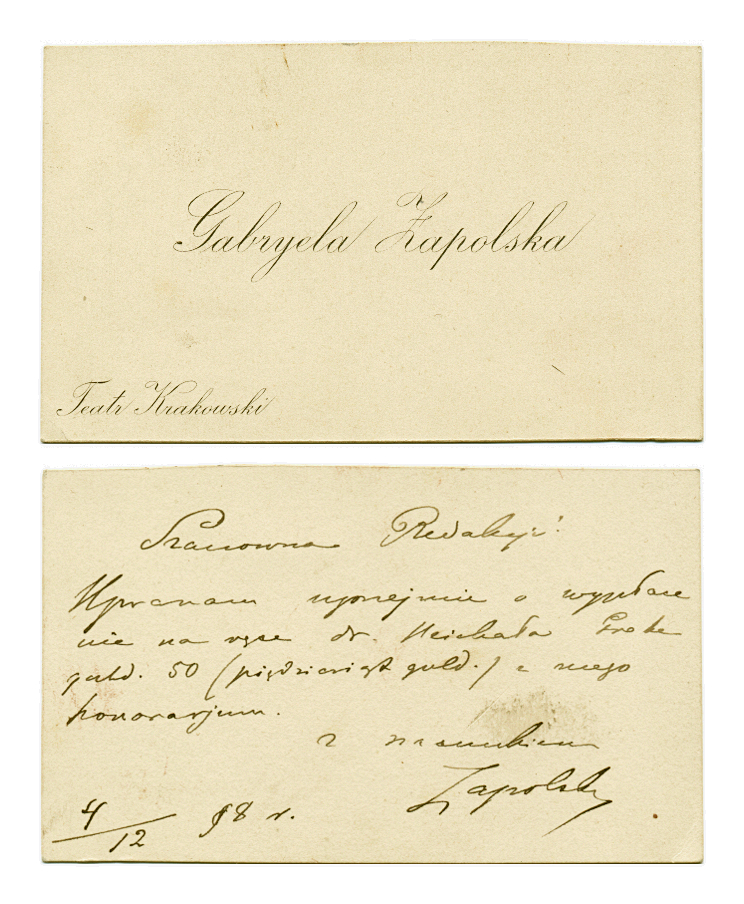 Gabryela Zapolska
Teatr Krakowski
Szanowna Redakcjo!
Upraszam uprzejmie o wypłace
nie na ręce dr. Michała
guld. 50 (pięćdziesiąt guld.) z mego
honorarjum.
z szacunkiem
Zapolska
4/12 98 r.